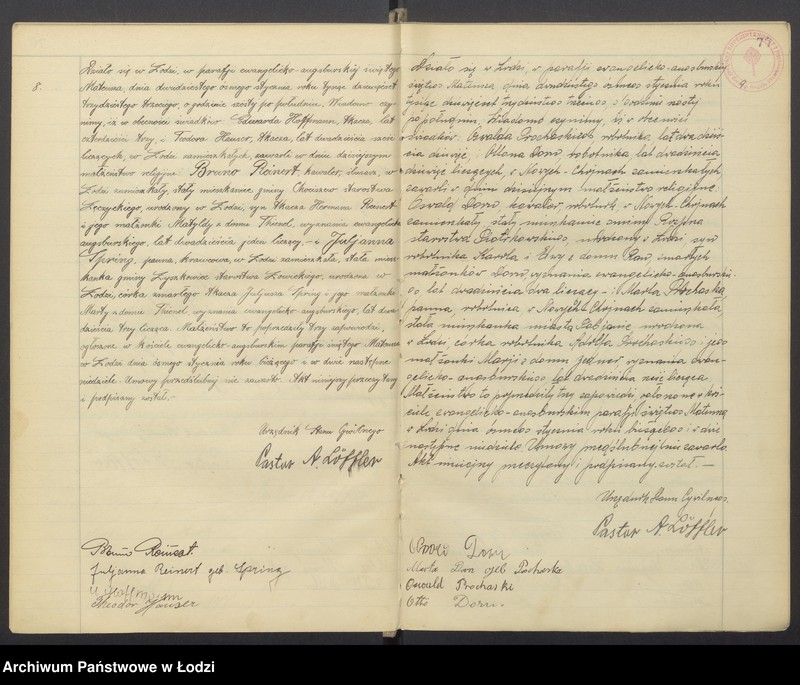 8.
Działo się w Łodzi, w parafji ewangelicko-augsburskiej świętego
Mateusza, dnia dwudziestego ósmego stycznia roku tysiąc dziewięćset
trzydziestego trzeciego, o godzinie szóstej po południu. Wiadomo czy-
nimy, iż w obecności świadków Edwarda Hoffmann, tkacza, lat
czterdzieści trzy, i Teodora Hauser, tkacza, lat dwadzieścia
liczących, w Łodzi zamieszkałych, zawarto w dniu dzisiejszym
małżeństwo religijne: Bruno Reinert, kawaler, w
Łodzi zamieszkały, stały mieszkaniec gminy Chociszew starostwa
Łęczyckiego, urodzony w Łodzi, syn tkacza Hermana Reinert
i jego małżonki Matyldy z domu Thienel, wyznania ewangelicko-
augsburskiego, lat dwadzieścia jeden liczący, – i Juljanna
Spring, panna, krawcowa, w Łodzi zamieszkała, stała miesz-
kanka gminy Łyszkowice starostwa Łowickiego, urodzona w
Łodzi, córka zmarłego tkacza Juljusza Spring i jego małżonki
Marty z domu Thienel, wyznania ewangelicko-augsburskiego, lat dwa-
dzieścia trzy licząca. Małżeństwo to poprzedziły trzy zapowiedzi,
ogłoszone w kościele ewangelicko-augsburskim parafji świętego Mateusza
w Łodzi dnia ósmego stycznia roku bieżącego i w dwie następne
niedziele. Umowy przedślubnej nie zawarto. Akt niniejszy przeczytany
i podpisany został.-
Urzędnik Stanu Cywilnego
Pastor A. Löffler
Bruno Reinert.
Juljanna Reinert geb. Spring
Hoffmann
Theodor Hauser
77
9.
Działo się w Łodzi, w parafji ewangelicko-augsburskiej
świętego Mateusza, dnia dwudziestego ósmego stycznia roku
tysiąc dziewięćset trzydziestego trzeciego, o godzinie szóstej
po południu. Wiadomo czynimy, iż w obecności
świadków: Oswalda Prochaskiego robotnika, lat dwadzieś-
cia dziewięć, i Ottona Dorn, robotnika, lat dwadzieścia
dziewięć liczących, w Nowych-Chojnach zamieszkałych
zawarto w dniu dzisiejszym małżeństwo religijne:
Oswald Dorn, kawaler, robotnik, w Nowych-Chojnach
zamieszkały, stały mieszkaniec gminy
starostwa Piotrkowskiego, urodzony w Łodzi, syn
robotnika Karola i Ewy z domu zmarłych
małżonków Dorn, wyznania ewangelicko-augsburskie-
go, lat dwadzieścia dwa liczący – i Marta Prochaska
panna, robotnica, w Nowych-Chojnach zamieszkała,
stała mieszkanka miasta Pabjanic, urodzona
w Łodzi, córka robotnika Adolfa Prochaskiego i jego
małżonki Marji z domu wyznania ewan-
gelicko-augsburskiego, lat dwadzieścia sześć licząca
Małżeństwo to poprzedziły trzy zapowiedzi, ogłoszone w koś-
ciele ewangelicko-augsburskim parafji świętego Mateusza
w Łodzi dnia ósmego stycznia roku bieżącego i w dwie
następne niedziele. Umowy przedślubnej nie zawarto.
Akt niniejszy przeczytany i podpisany został. –
Urzędnik Stanu Cywilnego.
Pastor A. Löffler
Dorn
Marta Dorn geb Prochaska
Oswald Prochaski
Otto Dorn.
Archiwum Państwowe w Łodzi